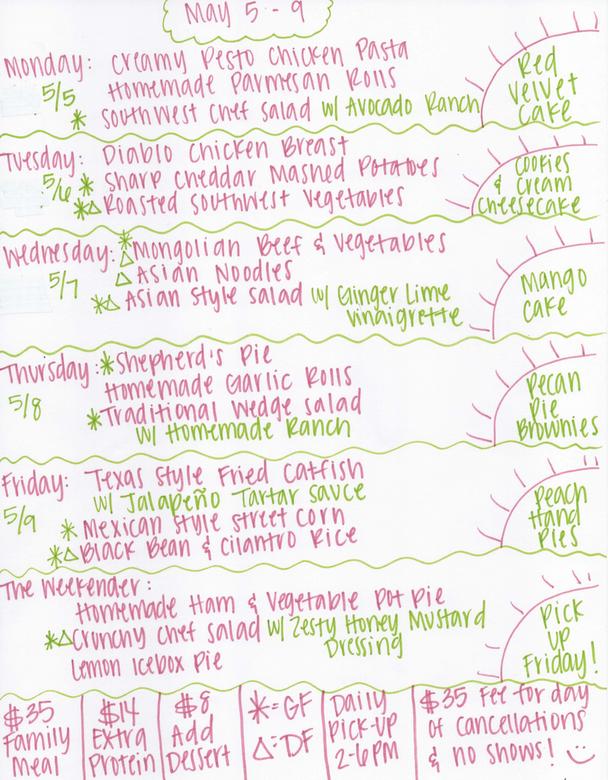 May 5 - 9
Monday: Creamy Pesto Chicken Pasta
5/5 Homemade Parmesan Rolls
* Southwest Chef Salad w/ Avocado Ranch
Red
Velvet
Cake
Tuesday: Diablo Chicken Breast
5/6 * Sharp Cheddar Mashed Potatoes
*△ Roasted Southwest Vegetables
Cookies
& Cream
Cheesecake
Wednesday: *△ Mongolian Beef & Vegetables
5/7 △ Asian Noodles
*△ Asian Style Salad w/ Ginger Lime
Vinaigrette
Mango
Cake
Thursday: * Shepherd's Pie
5/8 Homemade Garlic Rolls
* Traditional Wedge Salad
w/ Homemade Ranch
Pecan
Pie
Brownies
Friday: Texas Style Fried Catfish
5/9 w/ Jalapeño Tartar Sauce
* Mexican Style Street Corn
*△ Black Bean & Cilantro Rice
Peach
Hand
Pies
The Weekender:
Homemade Ham & Vegetable Pot Pie
*△ Crunchy Chef Salad w/ Zesty Honey Mustard
Dressing
Lemon Icebox Pie
Pick
Up
Friday!
$35
Family
Meal
$14
Extra
Protein
$8
Add
Dessert
* = GF
△ = DF
Daily
Pick-up
2-6PM
$35 Fee for day
of cancellations
& no shows!